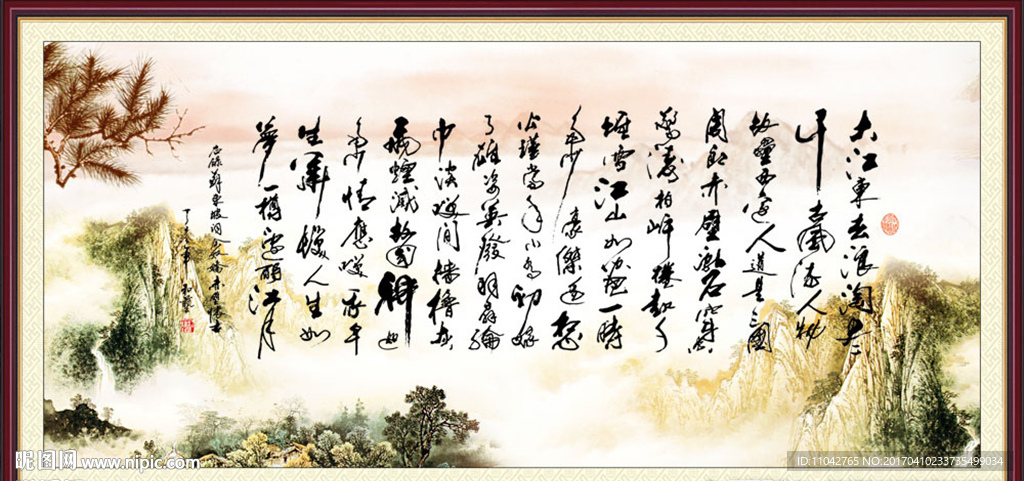 大江東去浪淘尽
千古風流人物
故壘西邊人道是三國
周郎赤壁亂石穿空
驚濤拍岸捲起千
堆雪江山如画一時
多少豪傑遥想
公瑾當年小喬初嫁
了雄姿英發羽扇綸
巾談笑間檣櫓灰
飛煙滅故國神遊
多情應笑我早
生華髮人生如
夢一樽還酹江月
蘇東坡詞念奴嬌赤壁懷古
昵图网 www.nipic.com
ID:11042765 NO:20170410233735499034